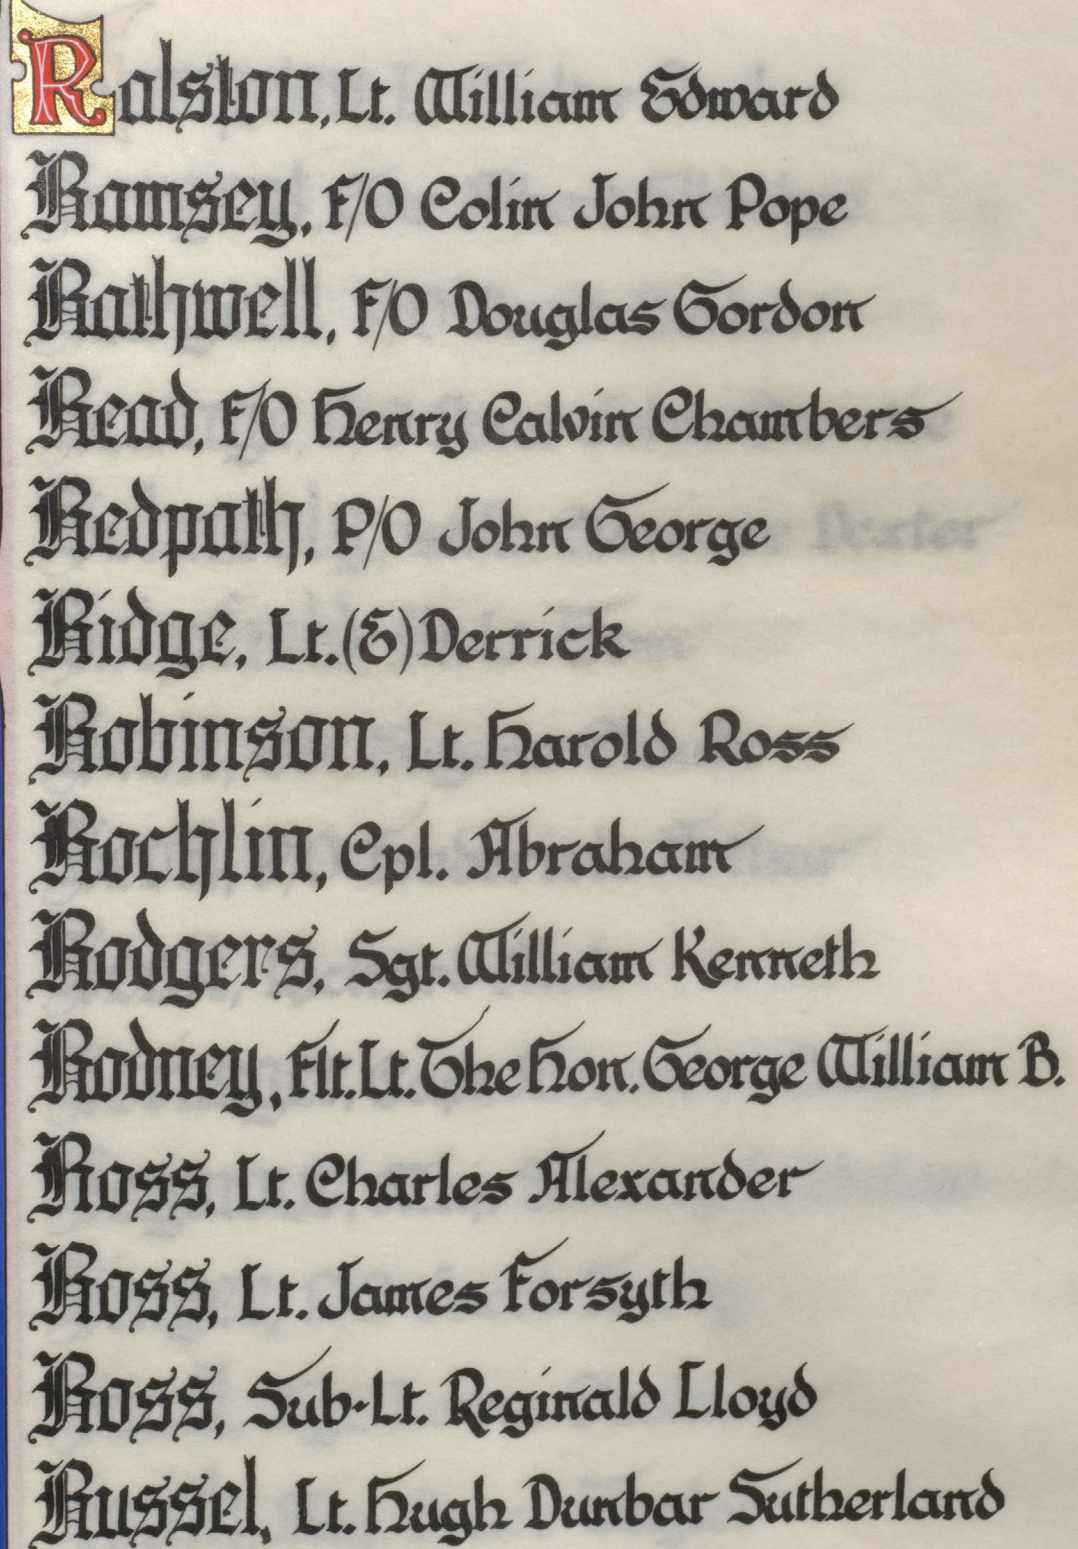 Ralston, Lt. William Edward
Ramsey, F/O Colin John Pope
Rathwell, F/O Douglas Gordon
Read, F/O Henry Calvin Chambers
Redpath, P/O John George
Ridge, Lt.(E) Derrick
Robinson, Lt. Harold Ross
Rochlin, Cpl. Abraham
Rodgers, Sgt. William Kenneth
Rodney, Flt. Lt. The Hon. George William B.
Ross, Lt. Charles Alexander
Ross, Lt. James Forsyth
Ross, Sub-Lt. Reginald Lloyd
Russel, Lt. Hugh Dunbar Sutherland